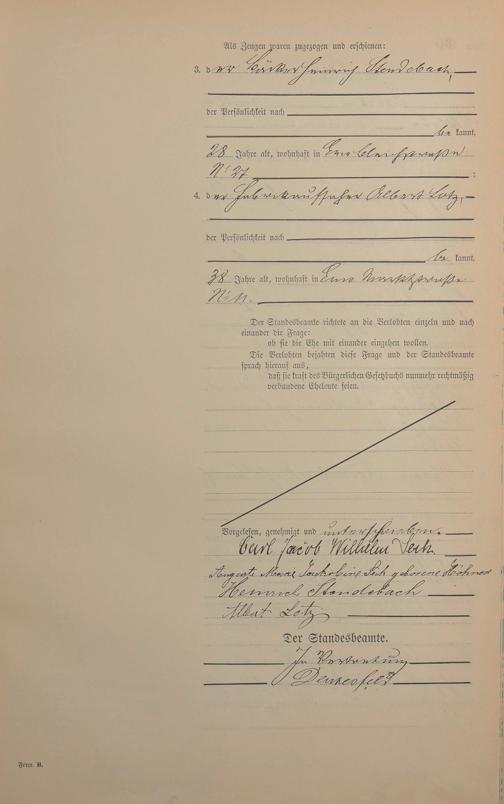 Als Zeugen waren zugezogen und erschienen:
3. der Bäcker Heinrich Stendebach,
der Persönlichkeit nach
be kannt,
28 Jahre alt, wohnhaft in Ems Bleichstraße
No 27 ;
4. der Fabrikaufseher Albert Lotz,
der Persönlichkeit nach
be kannt,
38 Jahre alt, wohnhaft in Ems Marktstraße
No 11.
Der Standesbeamte richtete an die Verlobten einzeln und nach
einander die Frage:
ob sie die Ehe mit einander eingehen wollen.
Die Verlobten bejahten diese Frage und der Standesbeamte
sprach hierauf aus,
daß sie kraft des Bürgerlichen Gesetzbuchs nunmehr rechtmäßig
verbundene Eheleute seien.
Vorgelesen, genehmigt und unterschrieben.
Carl Jacob Wilhelm
Auguste Marie Jakobine geborene
Heinrich Stendebach
Albert Lotz
Der Standesbeamte.
In Vertretung
Form. B.